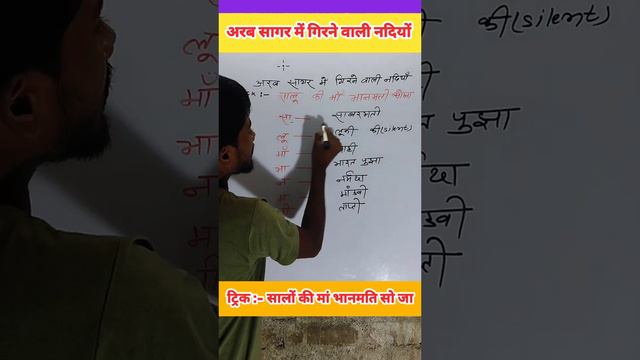 अरब सागर में गिरने वाली नदियों
अरब सागर में गिरने वाली नदियाँ
सा — साबरमती
लू — लूनी की (silent)
माँ — माही
भा — भारत पुझा
न — नर्मदा
मांडवी
ताप्ती
ट्रिक :- सालों की मां भानमति सो जा